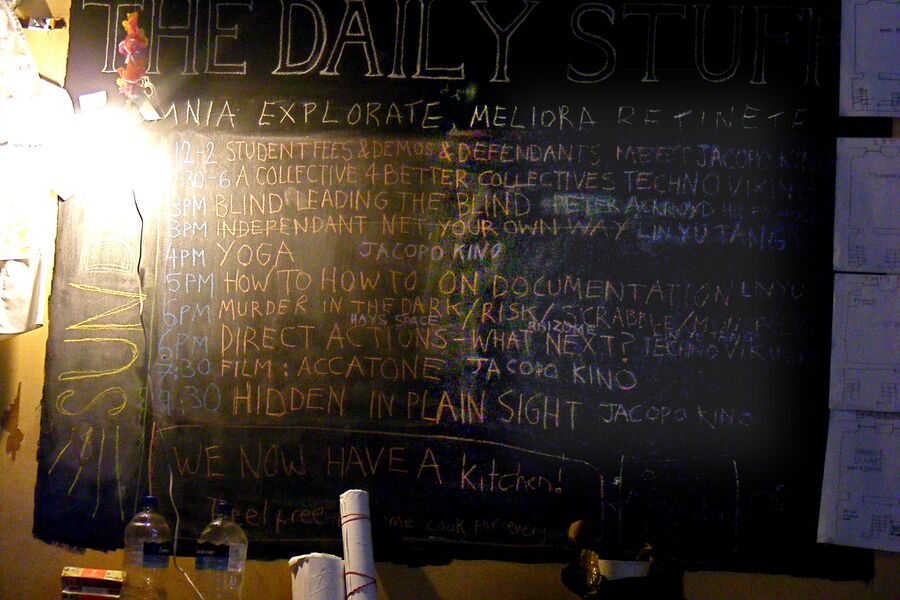 THE DAILY STUFF
OMNIA EXPLORATE, MELIORA RETINETE
12-2 STUDENT FEES & DEMOS & DEFENDANTS MEET JACOPO KINO
:30-6 A COLLECTIVE 4 BETTER COLLECTIVES TECHNO VIKING
3PM BLIND LEADING THE BLIND PETER ACKROYD
3PM INDEPENDANT NET, YOUR OWN WAY LIN YU TANG
4PM YOGA JACOPO KINO
5PM HOW TO HOW TO ON DOCUMENTATION LIN YU
6PM MURDER IN THE DARK/RISK/SCRABBLE/
HAYS SPACE RHIZOME
6PM DIRECT ACTIONS - WHAT NEXT? TECHNO VIKING
7:30 FILM: ACCATONE JACOPO KINO
9:30 HIDDEN IN PLAIN SIGHT JACOPO KINO
SUND
WE NOW HAVE A Kitchen!
Feel free me cook for everyone